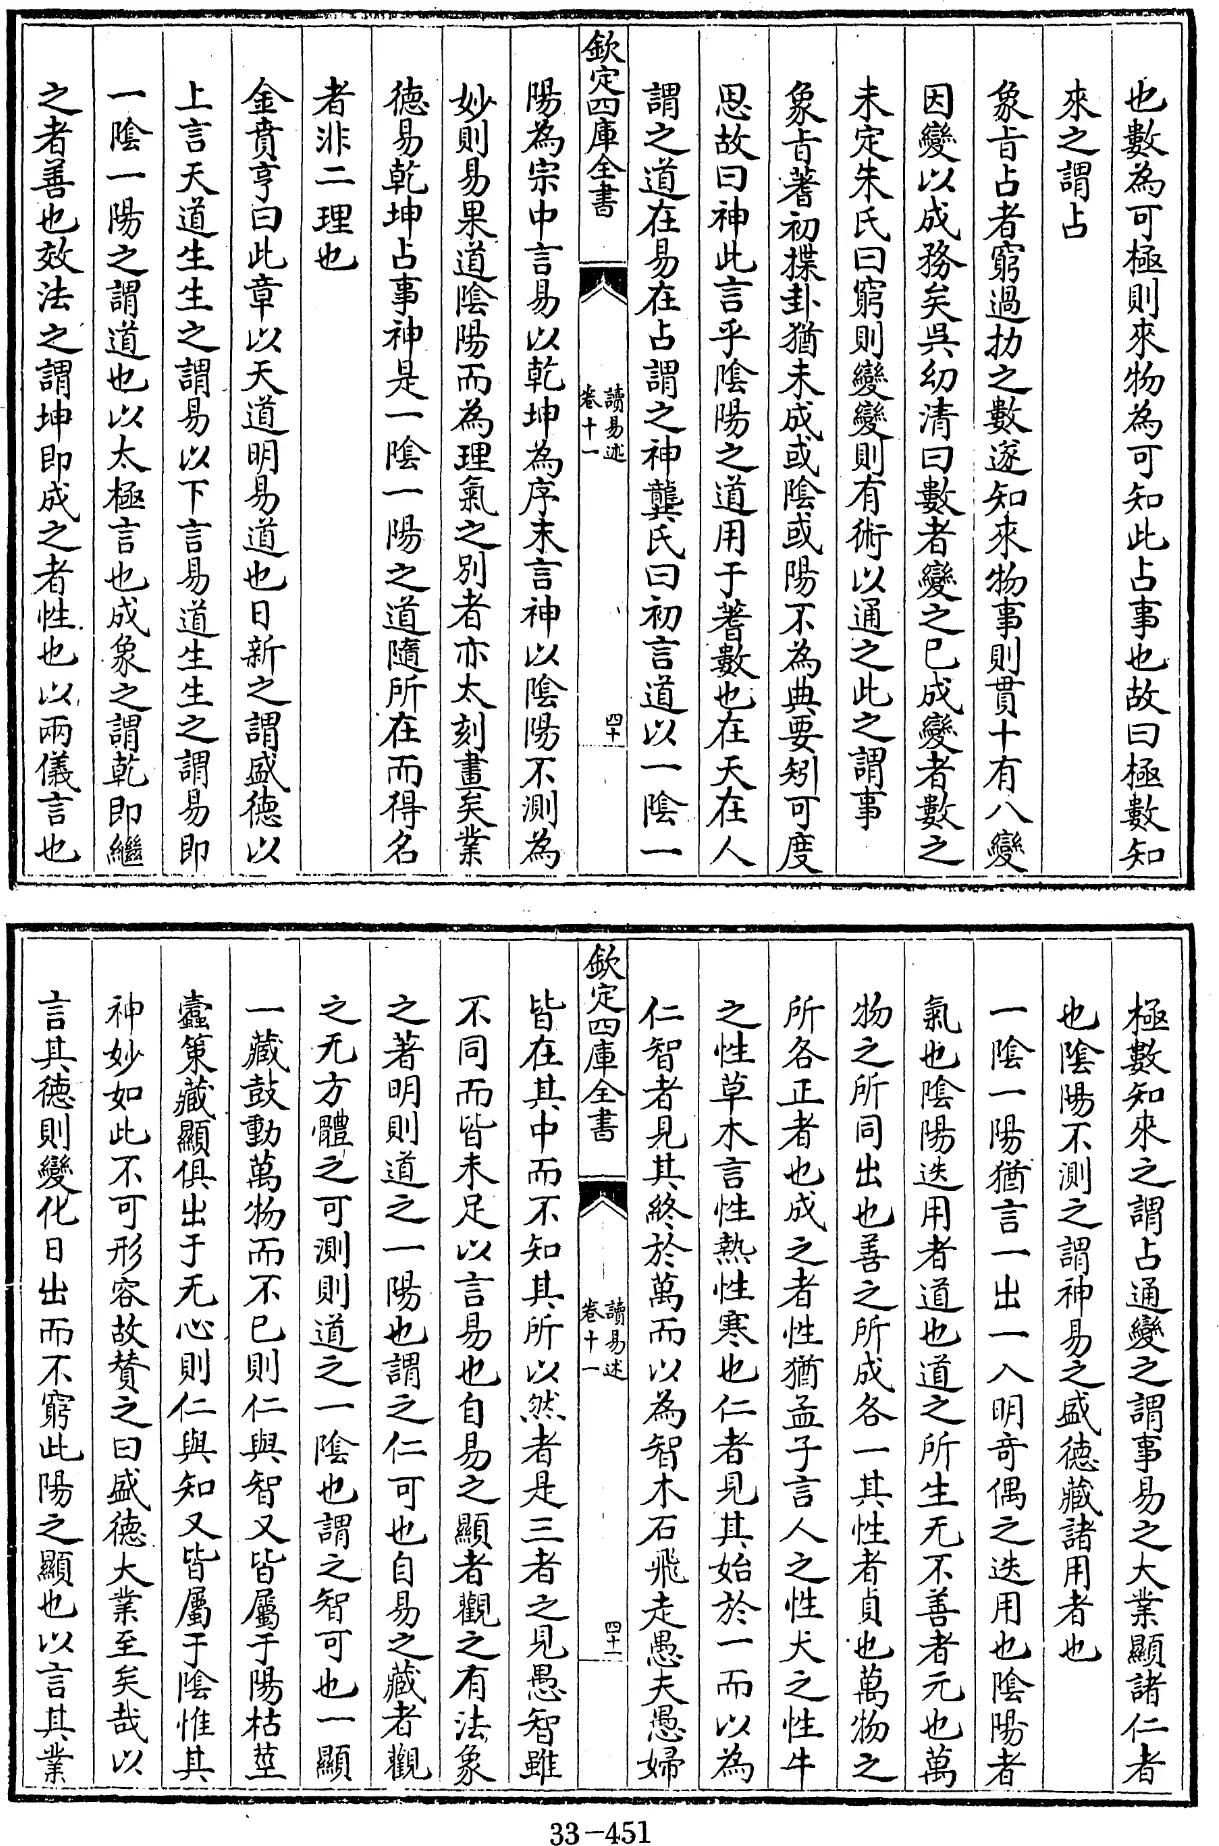 也數為可極則來物為可知此占事也故曰極數知
來之謂占
象旨占者窮過扐之數遂知來物事則貫十有八變
因變以成務矣吳幼清曰數者變之已成變者數之
未定朱氏曰窮則變變則有術以通之此之謂事
象旨蓍初揲卦猶未成或陰或陽不為典要矧可度
思故曰神此言乎陰陽之道用于蓍數也在天在人
謂之道在易在占謂之神龔氏曰初言道以一陰一
欽定四庫全書
讀易述
卷十一
四十
陽為宗中言易以乾坤為序末言神以陰陽不測為
妙則易果道陰陽而為理氣之別者亦太刻畫矣業
德易乾坤占事神是一陰一陽之道隨所在而得名
者非二理也
金賁亨曰此章以天道明易道也日新之謂盛德以
上言天道生生之謂易以下言易道生生之謂易即
一陰一陽之謂道也以太極言也成象之謂乾即繼
之者善也效法之謂坤即成之者性也以兩儀言也
極數知來之謂占通變之謂事易之大業顯諸仁者
也陰陽不測之謂神易之盛德藏諸用者也
一陰一陽猶言一出一入明奇偶之迭用也陰陽者
氣也陰陽迭用者道也道之所生无不善者元也萬
物之所同出也善之所成各一其性者貞也萬物之
所各正者也成之者性猶孟子言人之性犬之性牛
之性草木言性熱性寒也仁者見其始於一而以為
仁智者見其終於萬而以為智木石飛走愚夫愚婦
欽定四庫全書
讀易述
卷十一
四十一
皆在其中而不知其所以然者是三者之見愚智雖
不同而皆未足以言易也自易之顯者觀之有法象
之著明則道之一陽也謂之仁可也自易之藏者觀
之无方體之可測則道之一陰也謂之智可也一顯
一藏鼓動萬物而不已則仁與智又皆屬于陽枯莖
蠹策藏顯俱出于无心則仁與知又皆屬于陰惟其
神妙如此不可形容故賛之曰盛德大業至矣哉以
言其德則變化日出而不窮此陽之顯也以言其業
33-451